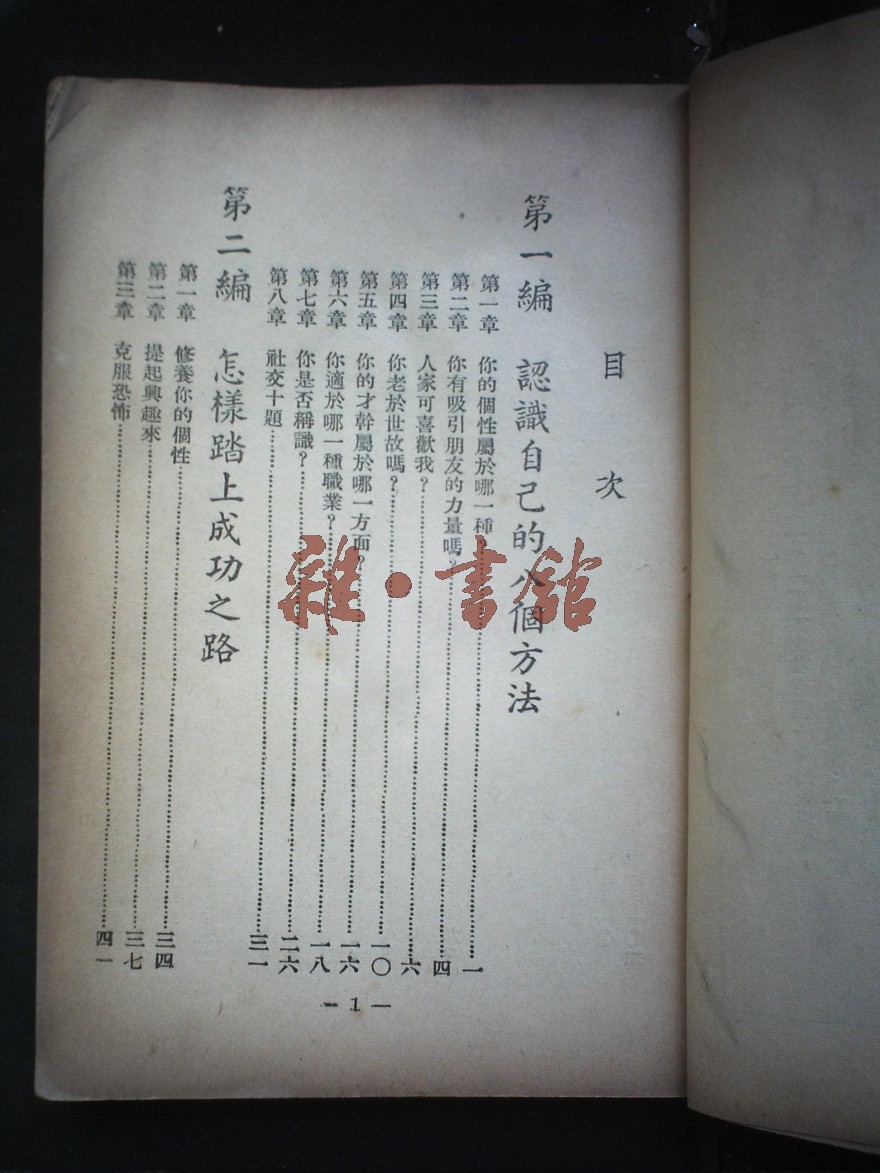 目次
第一編 認識自己的八個方法
第一章 你的個性屬於哪一種?一
第二章 你有吸引朋友的力量嗎?四
第三章 人家可喜歡我?六
第四章 你老於世故嗎?一〇
第五章 你的才幹屬於哪一方面?一六
第六章 你適於哪一種職業?一八
第七章 你是否稱識?二六
第八章 社交十題三一
第二編 怎樣踏上成功之路
第一章 修養你的個性三四
第二章 提起興趣來三七
第三章 克服恐怖四一
— 1 —
雜·書館